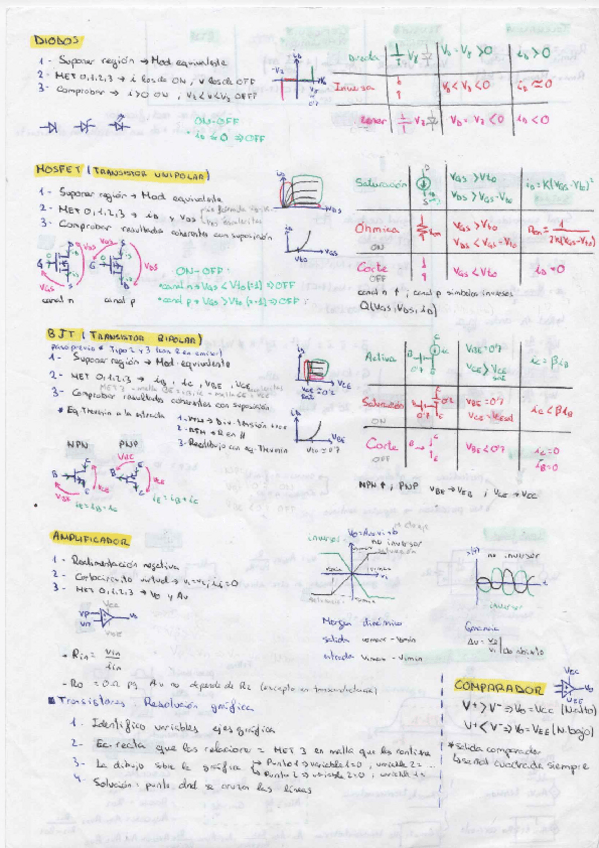 DIODOS
1 - Suponer región → Mod equivalente
2 - MET 0,1,2,3 → i los de ON, v los de OFF
3 - Comprobar → i>0 ON, OFF?
ON-OFF
iD ≤ 0 ⇒ OFF
Directa Vγ VD = Vγ > 0 iD > 0
Inversa VD < 0 iD ≃ 0
Zener VD = VZ < 0 iD < 0
MOSFET (TRANSISTOR UNIPOLAR)
1 - Suponer región → Mod equivalente
2 - MET 0,1,2,3 → iD y VDS
3 - Comprobar resultados coherentes con suposición
VDS
VGS
G
canal n canal p
ON-OFF
canal n VGS < Vto ⇒ OFF
canal p VGS > Vto ⇒ OFF
Saturación VGS > Vto iD = K(VGS-Vto)²
VDS > VGS-Vto
Óhmica VGS > Vto Ron = 1/2K(VGS-Vto)
ON VDS < VGS-Vto
Corte VGS < Vto iD = 0
OFF
canal n ↑, canal p símbolos inversos
Q(VGS, VDS, iD)
BJT (TRANSISTOR BIPOLAR)
1 - Suponer región → Mod. equivalente
2 - MET 0,1,2,3 → iB, iC, VBE, VCE
3 - Comprobar resultados coherentes con suposición
* Eq. Thevenin a la entrada
1 - VTH → Div. tensión
2 - RTH → R en //
3 - Redibujo con eq. Thevenin
VCE
VBE
NPN PNP
iE = iB + iC
iE = iB + iC
Activa VBE = 0'7 iC = βiB
VCE > VCE sat
Saturación VBE = 0'7 iC < βiB
ON VCE = VCE sat
Corte VBE < 0'7 iC = 0
OFF iB = 0
NPN ↑, PNP VBE → VEB, VCE → VEC
AMPLIFICADOR
1 - Realimentación negativa
2 - Cortocircuito virtual → v+ = v-, i = 0
3 - MET 0,1,2,3 → Vo y Av
VCC
VEE
Vo
- Rin = vin / iin
- Ro = 0 Ω pq Av no depende de RL
inversor
no inversor
saturación
Margen dinámico
salida vomax - vomin
entrada vimax - vimin
no inversor
inversor
Ganancia
Av = vo / vi
Transistores - Resolución gráfica
1 - Identifico variables ejes gráfica
2 - Ec recta que las relacione = MET 3 en malla que las contiene
3 - La dibujo sobre la gráfica
Punto 1 → variable 1 = 0, variable 2 = ..
Punto 2 → variable 2 = 0, variable 1 =
4 - Solución: punto dnd se cruzan las líneas
COMPARADOR
VCC
Vo
VEE
V+ > V- ⇒ Vo = VCC (N. alto)
V+ < V- ⇒ Vo = VEE (N. bajo)
* salida comparador
↳ señal cuadrada siempre